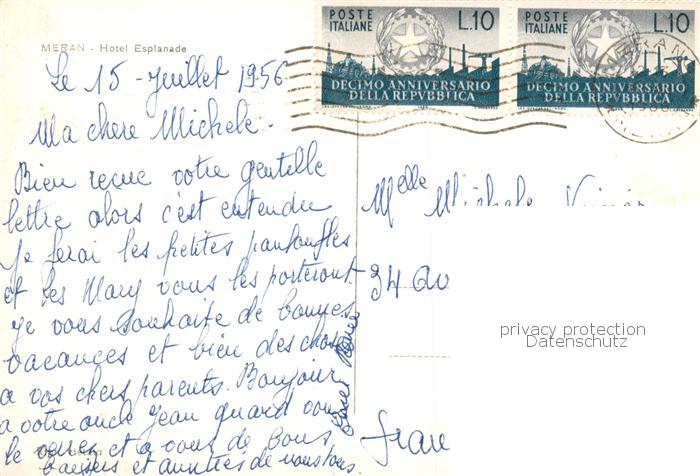 MERAN - Hotel Esplanade
Le 15 - Juillet 1956
Ma chere Michele.
Bien reçue votre gentille
lettre alors c'est entendu
je ferai les petites pantoufles
et les Mary vous les porteront
je vous souhaite de bonnes
vacances et bien des choses
a vos chers parents. Bonjour
a votre oncle Jean quand vous
le verrez et a vous de bons
baisers et amitiés de nous tous.
POSTE ITALIANE L.10
DECIMO ANNIVERSARIO
DELLA REPVBBLICA
POSTE ITALIANE L.10
DECIMO ANNIVERSARIO
DELLA REPVBBLICA
MERANO
Melle Michele
34 av
privacy protection
Datenschutz